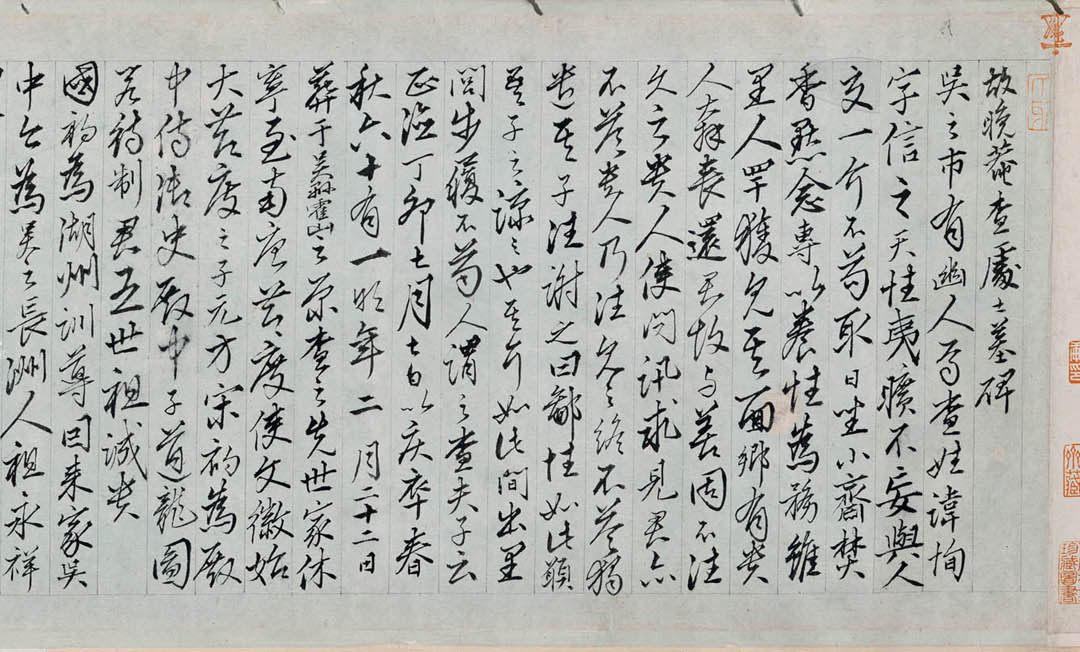 故晚菴查處士墓碑
吳之市有幽人焉查姓諱恂
字信之天性夷曠不妄與人
交一介不苟取日坐小齋焚
香默念專以養性為務雖
里人罕獲見其面鄉有貴
人奔喪還君故与善固不往
久之貴人使問訊求見君亦
不答貴人乃往見之終不答獨
遣其子往謝之曰鄙性如此願
吾子之諒之也其介如此間出里
閭步履不苟人謂之查夫子云
正德丁卯七月七日以疾卒春
秋六十有一明年二月二十二日
葬于吳縣霍山之原查之先世家休
寧至南唐節度使文徽始
大節度之子元方宋初為殿
中侍御史殿中子道龍圖
閣待制君五世祖誠
國初為湖州訓導因來家吳
中今為吳之長洲人祖永祥